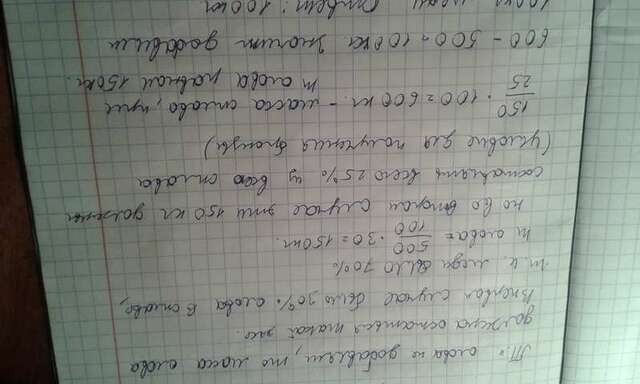 Т.к олова не добавляем, то масса олова
должна остаться такой же.
В первом случае было 30% олова в сплаве,
т.к. меди было 70%
m олова = 500/100 · 30 = 150 кг.
но во втором случае эти 150 кг должны
составлять всего 25% из всего сплава
(условие для получения бронзы)
150/25 · 100 = 600 кг. - масса сплава, при
m олова равной 150 кг.
600 - 500 = 100 кг значит добавили
100 кг меди Ответ: 100 кг